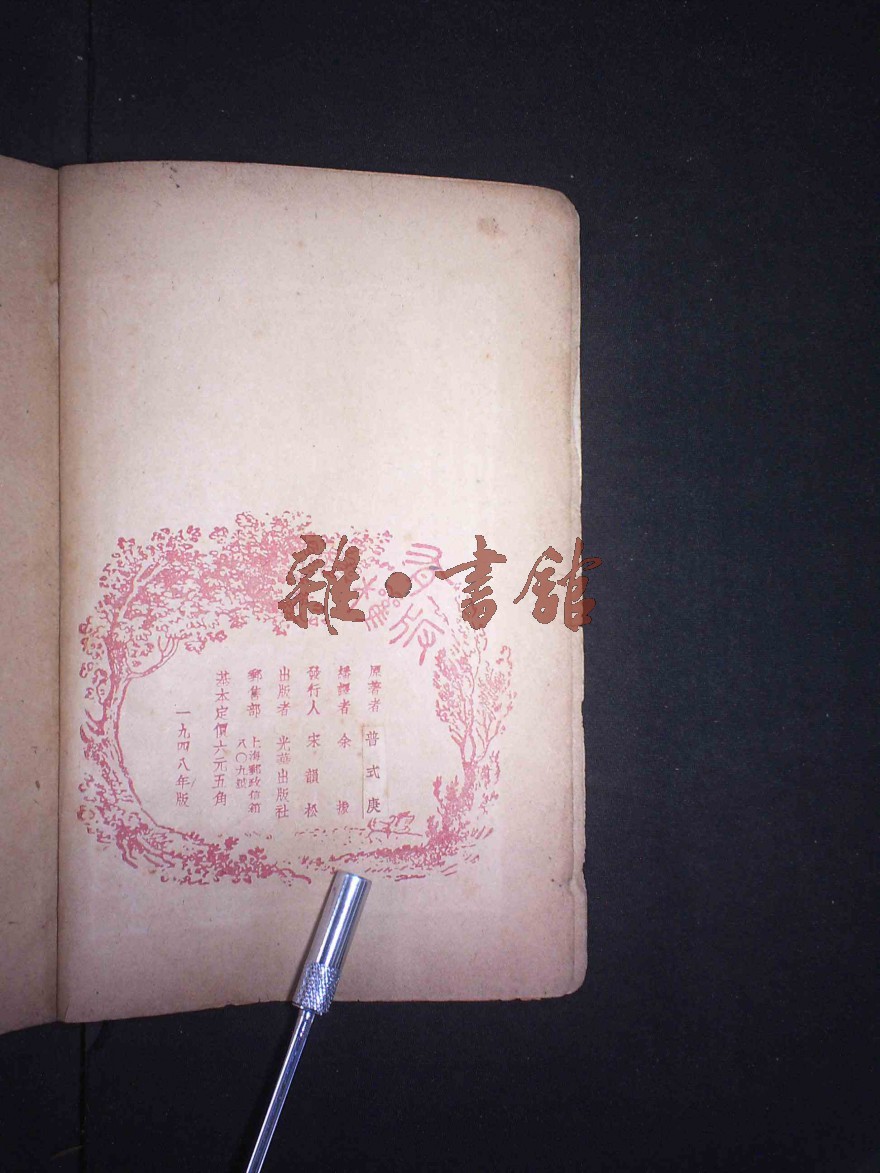 雜·書館
有版
權
原著者 普式庚
編譯者 余振
發行人 宋韻松
出版者 光華出版社
郵售部 上海郵政信箱
八〇九號
基本定價六元五角
一九四八年版